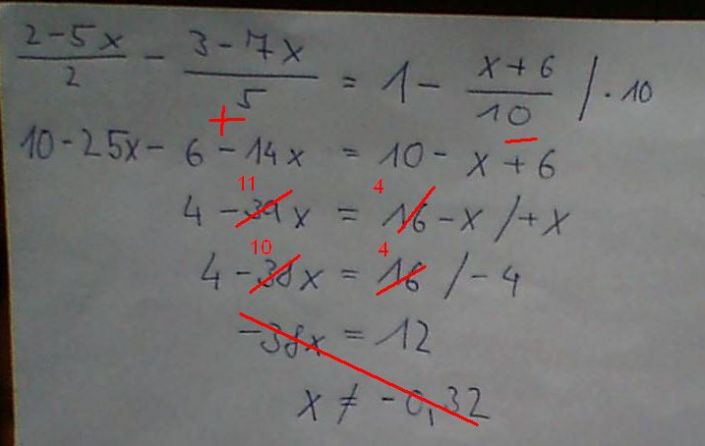 2-5x/2 - 3-7x/5 = 1 - x+6/10 /·10
+ -
10-25x- 6-14x = 10- x+6
11 4
4-39x = 16-x /+x
10 4
4-38x = 16 /-4
-38x = 12
x ≠ -0,32